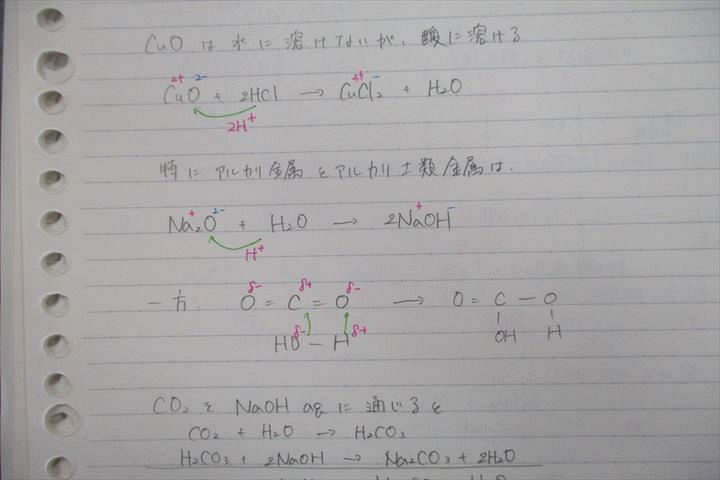 CuO は水に溶けないが、酸に溶ける
2+ 2- 2+ -
CuO + 2HCl → CuCl2 + H2O
2H+
特にアルカリ金属とアルカリ土類金属は、
+ 2- + -
Na2O + H2O → 2NaOH
H+
δ- δ+ δ-
一方 O = C = O → O = C - O
δ- δ+
HO - H OH H
CO2 を NaOH aq に通じると
CO2 + H2O → H2CO3
H2CO3 + 2NaOH → Na2CO3 + 2H2O